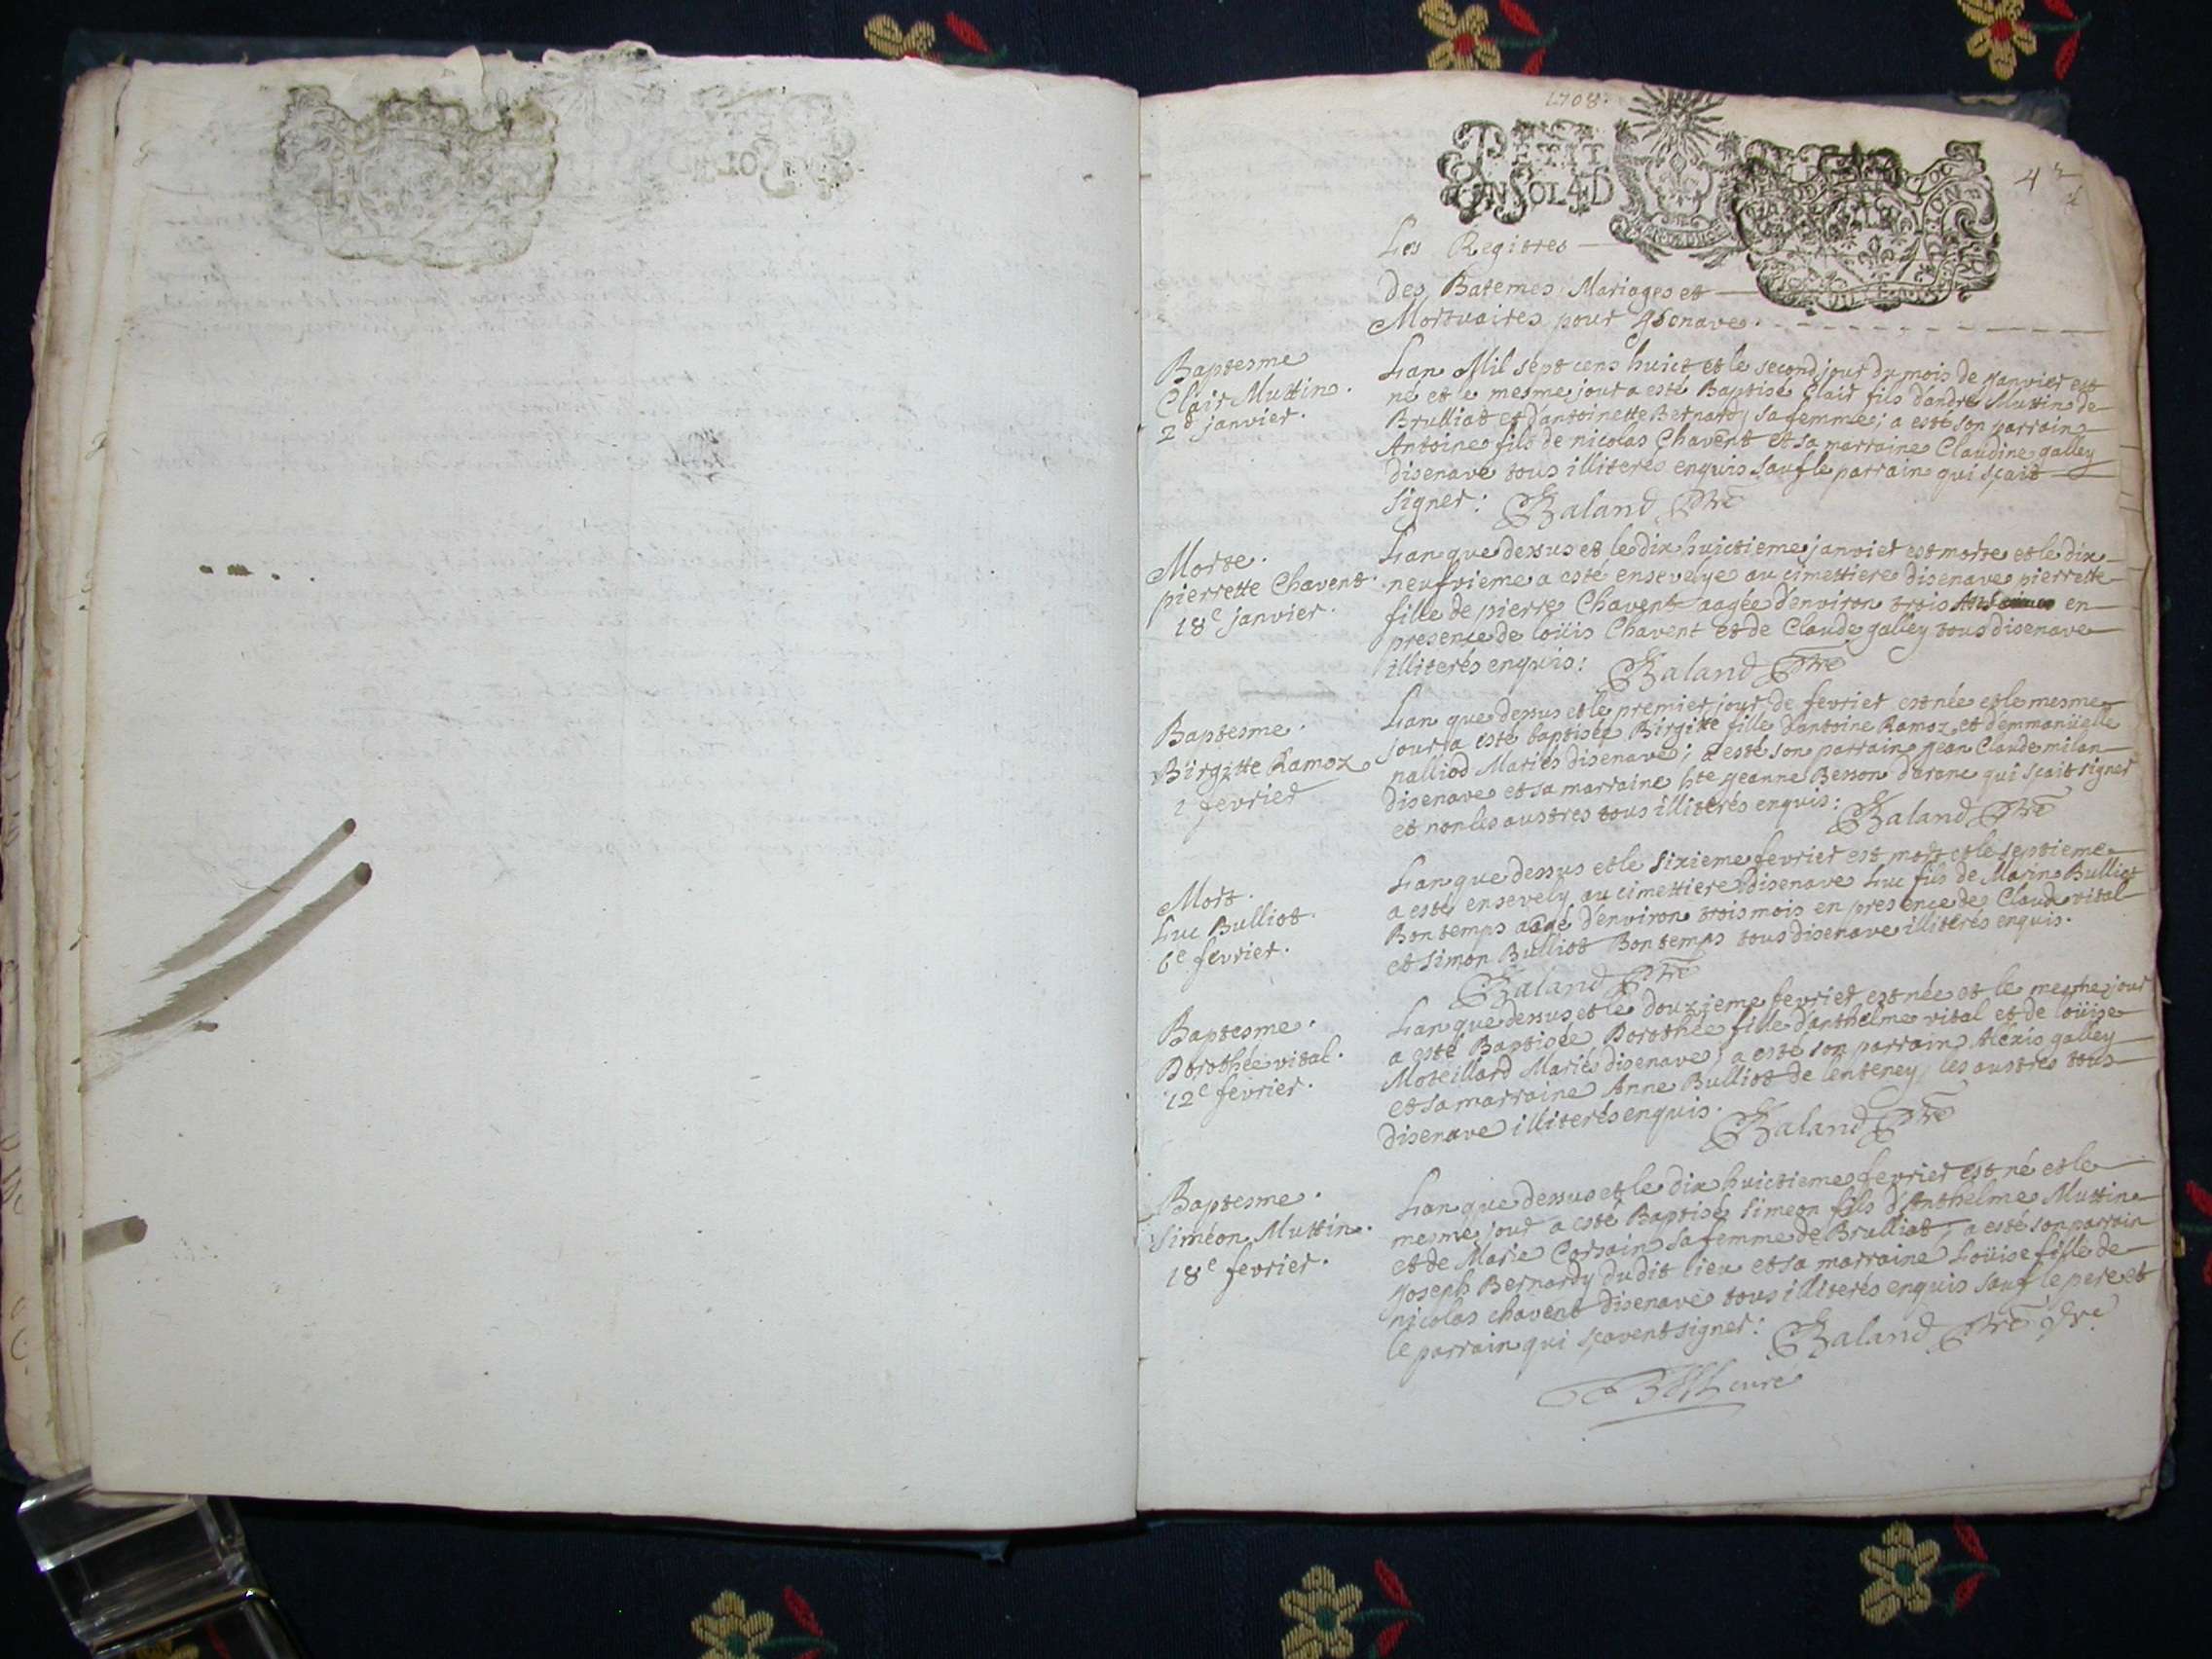 1708.
PETIT
UN SOL 4 D
4
Les Registres
des Batemes Mariages et
Mortuaires pour Isenave.
Baptesme
Clair Muttin.
2d janvier.
Lan Mil sept cens huict et le second jour du mois de janvier est
né et le mesme jour a esté Baptisé Clair fils d'andré Muttin de
Brulliat et d'antoinette Bernardy sa femme; a esté son parrain
Antoine fils de nicolas Chavent et sa marraine Claudine galley
disenave tous illiterés enquis sauf le parrain qui sçait
signer: Baland Ptre
Morte.
pierrette Chavent.
18e janvier.
Lan que dessus et le dix huictieme janvier est morte et le dix
neufvieme a esté ensevelye au cimettiere disenave pierrette
fille de pierre Chavent aagée d'environ trois en
presence de loüis Chavent et de Claude galley tous disenave
illiterés enquis: Baland Ptre
Baptesme.
Birgitte Ramoz
1 fevrier
Lan que dessus et le premier jour de fevrier est née et le mesme
jour a esté baptisée Birgitte fille d'antoine Ramoz et d'emmanüelle
nalliod Mariés disenave; a esté son parrain jean Claude milan
disenave et sa marraine hte jeanne Besson d'aranc qui sçait signer
et non les austres tous illiterés enquis: Baland Ptre
Mort.
Luc Bulliot.
6e fevrier.
Lan que dessus et le sixieme fevrier est mort et le septieme
a esté ensevely au cimettiere disenave Luc fils de Marin Bulliot
Bontemps aagé d'environ trois mois en presence de Claude vital
et simon Bulliot Bontemps tous disenave illiterés enquis.
Baland Ptre
Baptesme.
Dorothée vital.
12e fevrier.
Lan que dessus et le douzieme fevrier est née et le mesme jour
a esté Baptisée Dorothée fille d'anthelme vital et de loüise
Moteillard Mariés disenave; a esté son parrain Alexis galley
et sa marraine Anne Bulliot de lenteney les austres tous
disenave illiterés enquis. Baland Ptre
Baptesme.
Siméon Muttin.
18e fevrier.
Lan que dessus et le dix huictieme fevrier est né et le
mesme jour a esté Baptisé simeon fils d'Anthelme Muttin
et de Marie Corsain sa femme de Brulliat, a esté son parrain
joseph Bernardy dudit lieu et sa marraine Loüise fille de
nicolas chavent disenave tous illiterés enquis sauf le pere et
le parrain qui sçavent signer: Baland Ptre
curé